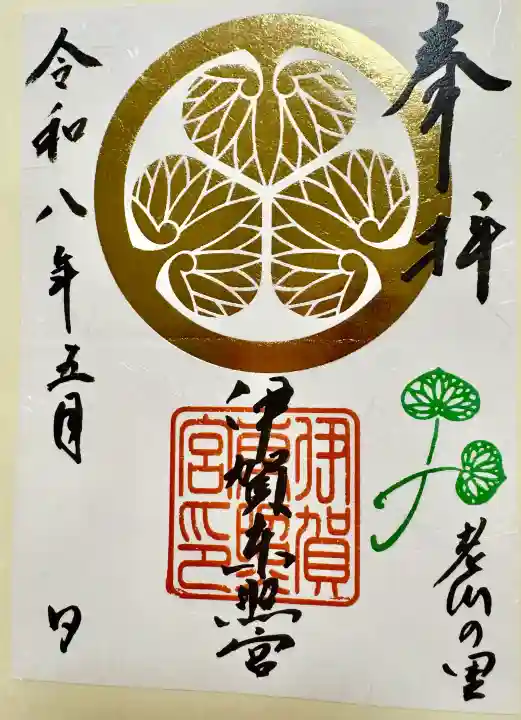 奉拝
老川の里
伊賀東照宮
伊賀
東照
宮印
令和八年五月 日